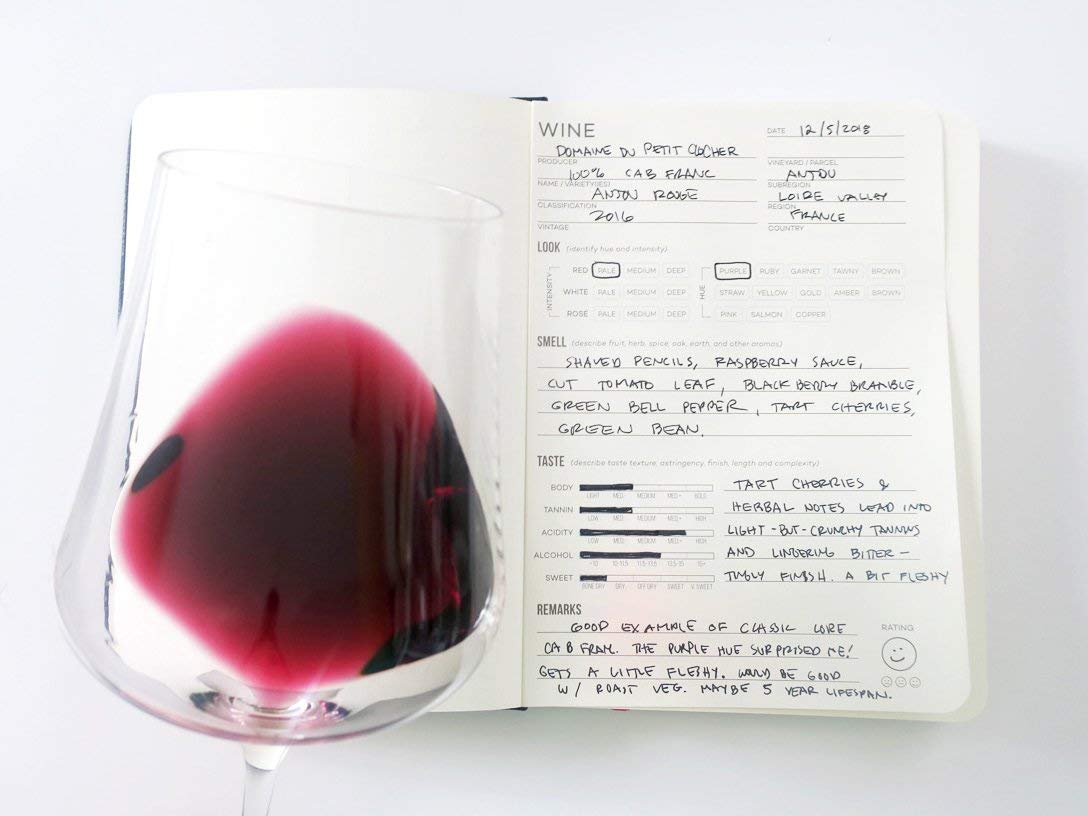 WINE
DATE 12/5/2018
DOMAINE DU PETIT CLOCHER
PRODUCER
VINEYARD / PARCEL
100% CAB FRANC
ANJOU
NAME / VARIETY(IES)
SUBREGION
ANJOU ROUGE
LOIRE VALLEY
CLASSIFICATION
REGION
2016
FRANCE
VINTAGE
COUNTRY
LOOK (identify hue and intensity)
INTENSITY
RED PALE MEDIUM DEEP
WHITE PALE MEDIUM DEEP
ROSÉ PALE MEDIUM DEEP
HUE
PURPLE RUBY GARNET TAWNY BROWN
STRAW YELLOW GOLD AMBER BROWN
PINK SALMON COPPER
SMELL (describe fruit, herb, spice, oak, earth, and other aromas)
SHAVED PENCILS, RASPBERRY SAUCE,
CUT TOMATO LEAF, BLACKBERRY BRAMBLE,
GREEN BELL PEPPER, TART CHERRIES,
GREEN BEAN.
TASTE (describe taste texture, astringency, finish, length and complexity)
BODY
LIGHT MED- MEDIUM MED+ BOLD
TANNIN
LOW MED- MEDIUM MED+ HIGH
ACIDITY
LOW MED- MEDIUM MED+ HIGH
ALCOHOL
<10 10-11.5 11.5-13.5 13.5-15 15+
SWEET
BONE DRY DRY OFF DRY SWEET V. SWEET
TART CHERRIES &
HERBAL NOTES LEAD INTO
LIGHT-BUT-CRUNCHY TANNINS
AND LINGERING BITTER-
TINGLY FINISH. A BIT FLESHY
REMARKS
GOOD EXAMPLE OF CLASSIC LOIRE
CAB FRAN. THE PURPLE HUE SURPRISED ME!
GETS A LITTLE FLESHY. WOULD BE GOOD
W/ ROAST VEG. MAYBE 5 YEAR LIFESPAN.
RATING